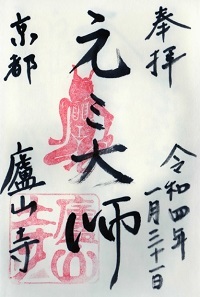 奉拝
令和四年
一月三十一日
元三大師
京都
廬山寺
廬山寺